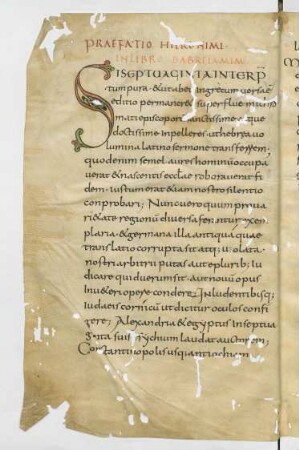 PRAEFATIO HIERONIMI
IN LIBRO DABREIAMIM
SI SEPTUAGINTA INTERP
tum pura & ut ab eis in grecum uersa est
editio permaner& superflue
episcoporum sanctissime atque
doctissime inpelleres ut hebraea uo
lumina latino sermone transferrem,
quod enim semel aures hominū occupa
uerat & nascentis ecclae roborauerat fi
dem. iustum erat &iam nostro silentio
conprobari; Nunc uero quum pro ua
ri&ate regionū diuersa ferantur exem
plaria & germana illa antiqua quae
translatio corrupta sit atq; uiolata
nostri arbitrii putas aut e plurib; iu
dicare quid uerum sit. aut nouū opus
in u&eri opere condere; Inludentibusq;
iudaeis cornicū ut dicitur oculos confi
gere; Alexandria & egyptus in septua
ginta suis esychium laudat auctorem;
Constantinopolis usq; antiochiam